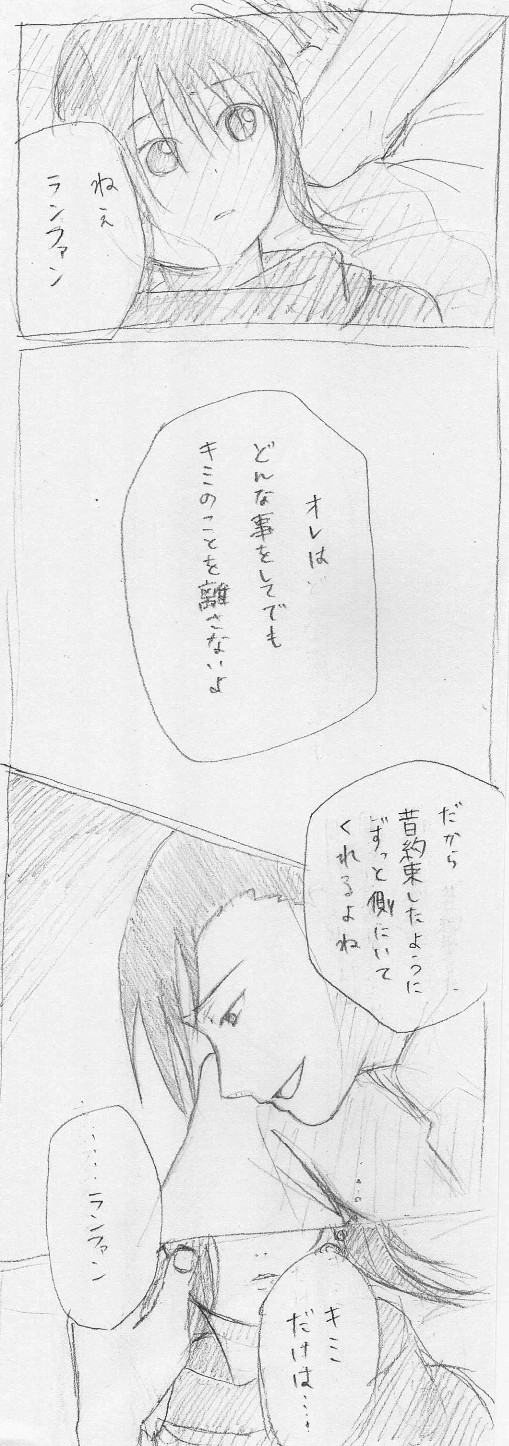 ねぇ
ランファン
オレは
どんな事をしてでも
キミのことを離さないよ
だから
昔約束したように
ずっと側にいて
くれるよね
……ランファン
キミ
だけは…